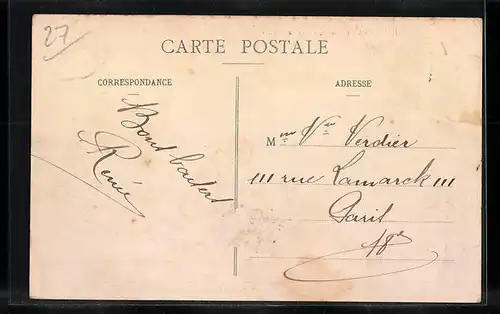 27
CARTE POSTALE
CORRESPONDANCE
Bons baisers
Renée
ADRESSE
Mme Vve Verdier
111 rue Lamarck 111
Paris
18e